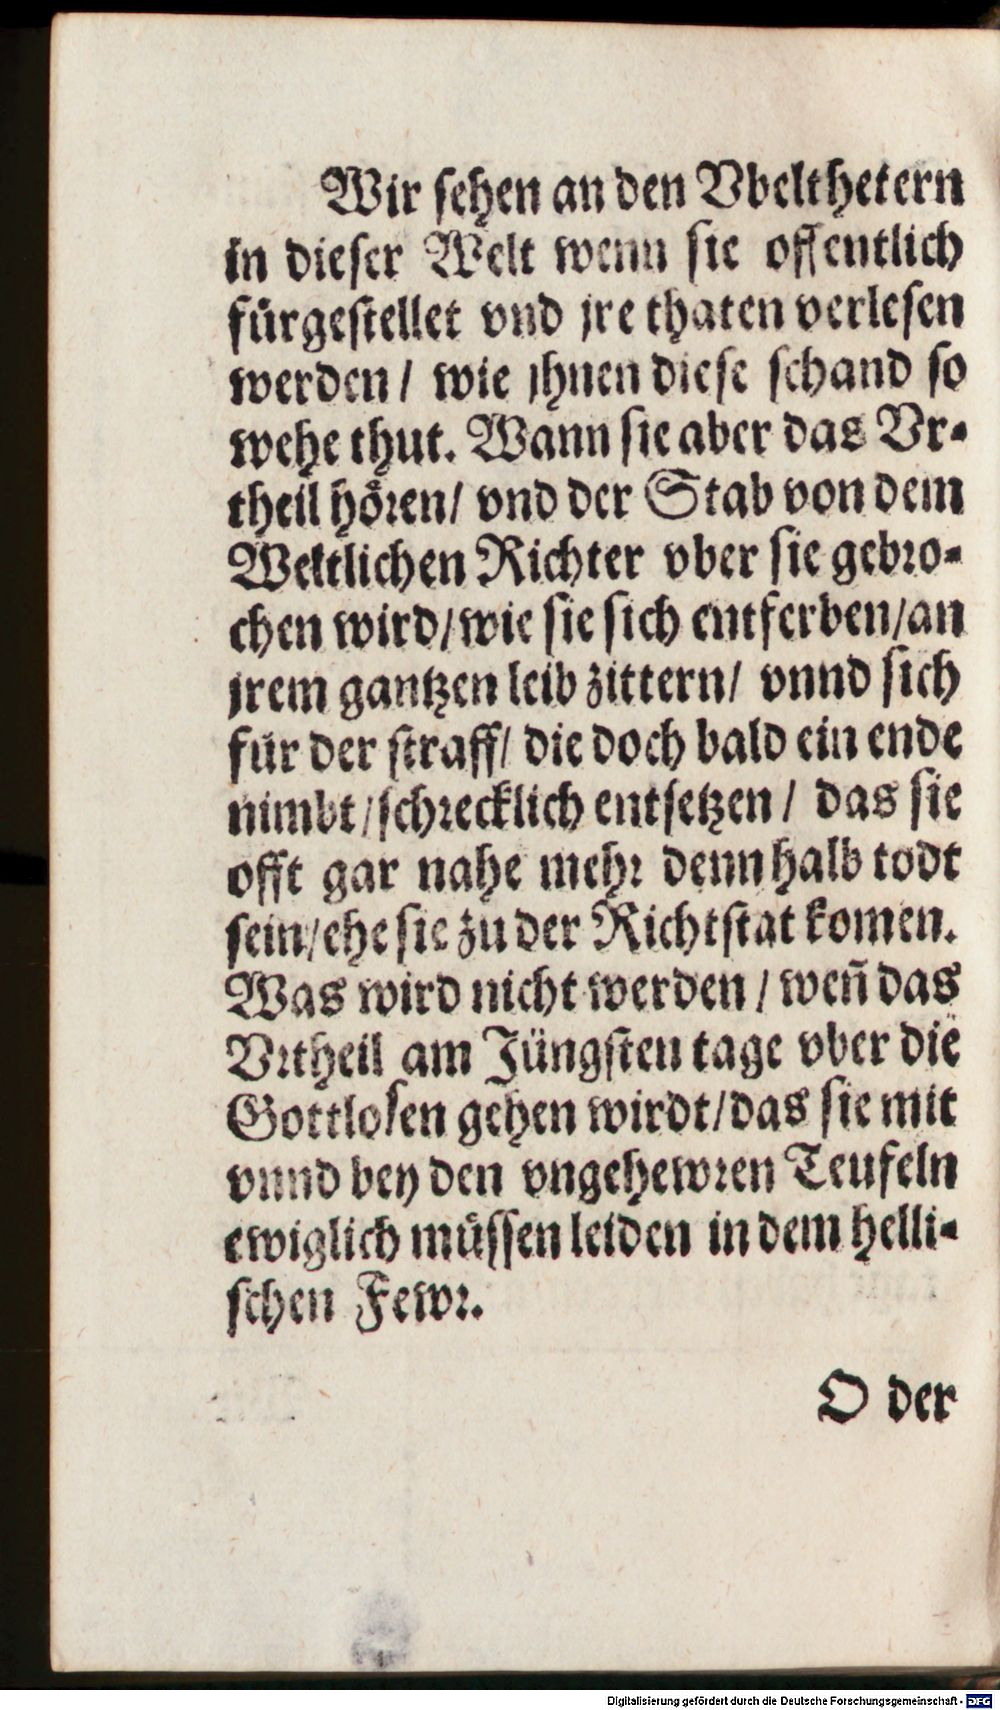 Wir sehen an den Vbelthetern
in dieser Welt wenn sie offentlich
fürgestellet vnd jre thaten verlesen
werden / wie jhnen diese schand so
wehe thut. Wann sie aber das Vr-
theil hören / vnd der Stab von dem
Weltlichen Richter vber sie gebro-
chen wird / wie sie sich entferben / an
jrem gantzen leib zittern / vnnd sich
für der straff / die doch bald ein ende
nimbt / schrecklich entsetzen / das sie
offt gar nahe mehr denn halb todt
sein / ehe sie zu der Richtstat komen.
Was wird nicht werden / weñ das
Vrtheil am Jüngsten tage vber die
Gottlosen gehen wirdt / das sie mit
vnnd bey den vngehewren Teufeln
ewiglich müssen leiden in dem helli-
schen Fewr.
O der
Digitalisierung gefördert durch die Deutsche Forschungsgemeinschaft - DFG